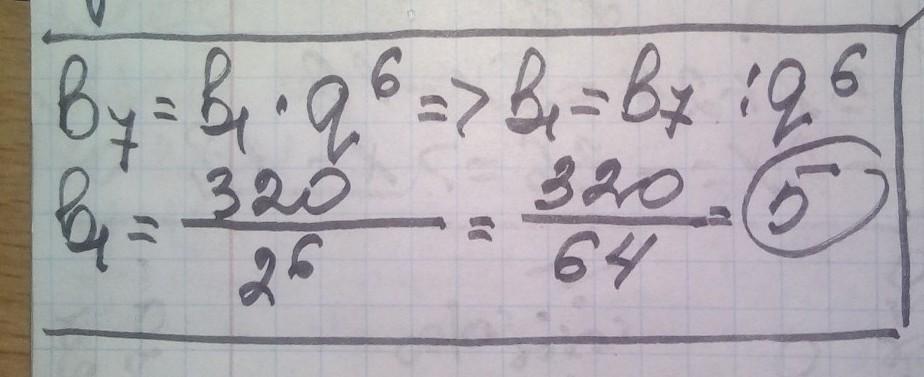 b₇ = b₁ · q⁶ => b₁ = b₇ : q⁶
b₁ = 320/2⁶ = 320/64 = 5